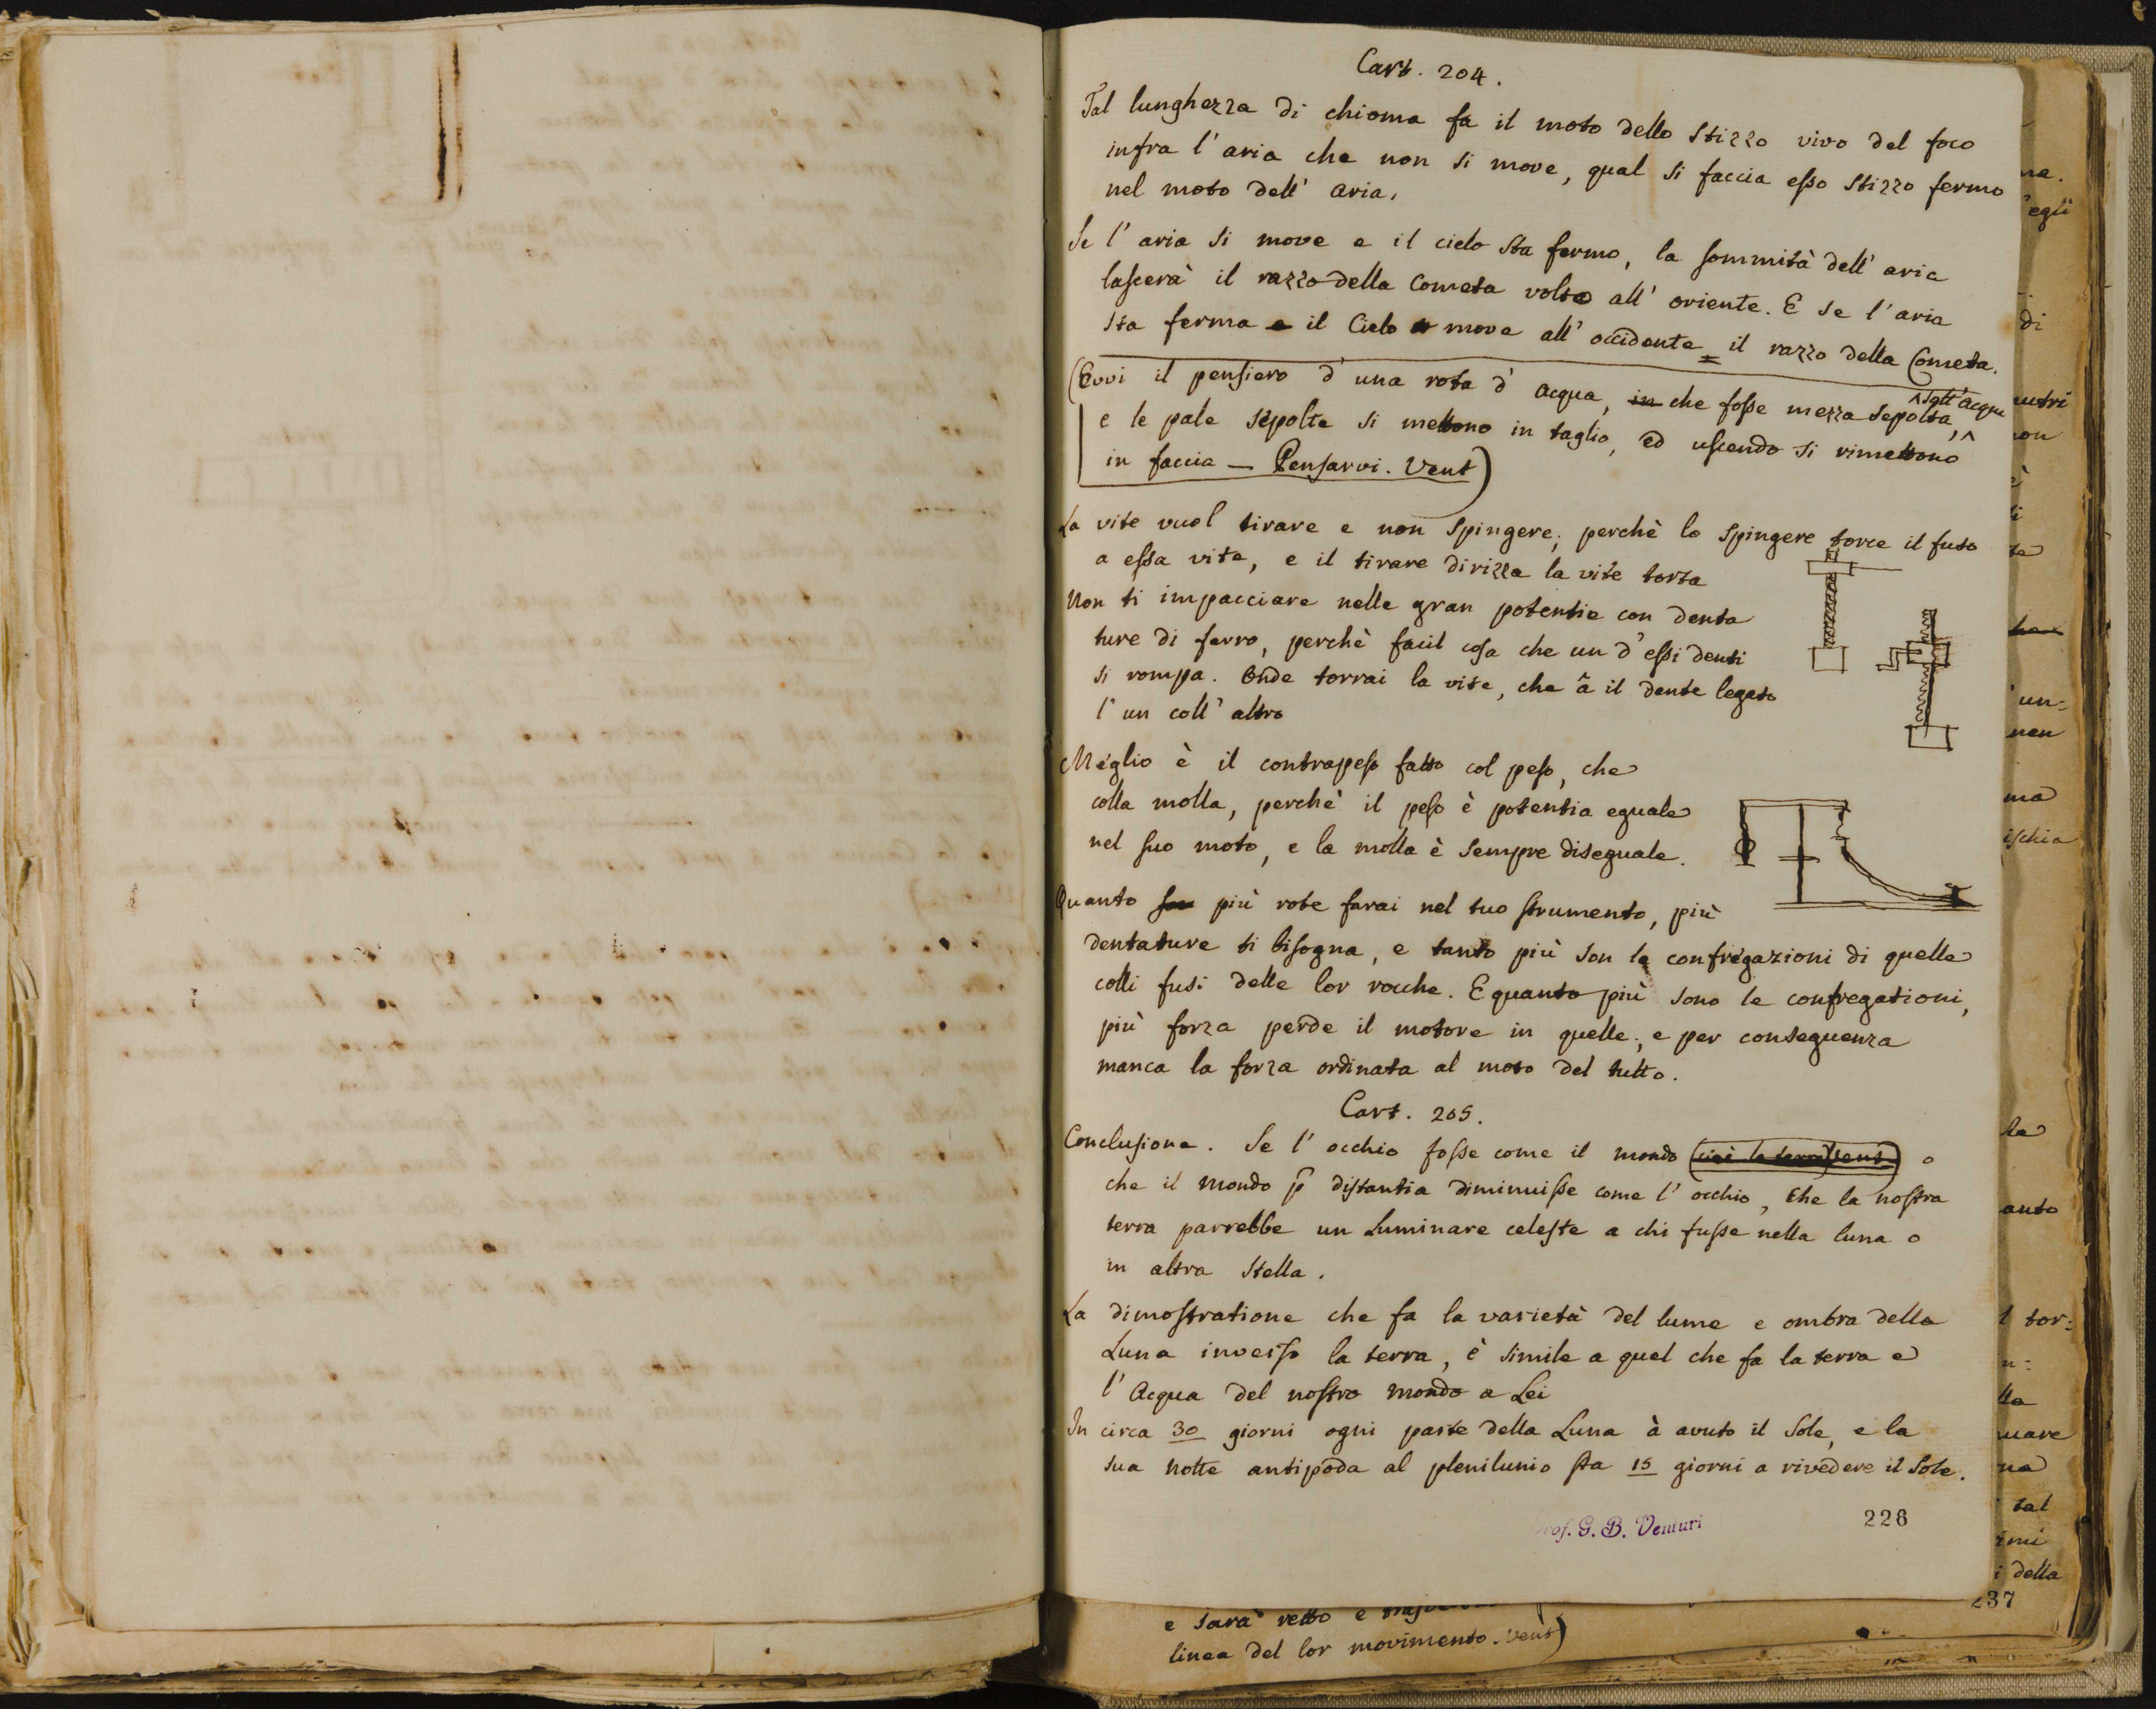 Cart. 204.
Tal lunghezza di chioma fa il moto dello stizzo vivo del foco
infra l'aria che non si move, qual si faccia esso stizzo fermo
nel moto dell'aria.
Se l'aria si move e il cielo sta fermo, la sommità dell'aria
lascerà il razzo della Cometa volto all'oriente. E se l'aria
sta ferma e il Cielo move all'occidente = il razzo della Cometa.
(Evvi il pensiero d'una rota d'acqua, in che fosse mezza sepolta, sott'acqu
e le pale sepolte si mettono in taglio, ed uscendo si rimettono
in faccia — Pensarvi. Vent)
La vite vuol tirare e non spingere; perchè lo spingere torce il fuso
a essa vite, e il tirare dirizza la vite torta
Non ti impacciare nelle gran potentie con denta
ture di ferro, perchè facil cosa che un d'essi denti
si rompa. Onde torrai la vite, che â il dente legato
l'un coll'altro
Meglio è il contrapeso fatto col peso, che
colla molla, perchè il peso è potentia eguale
nel suo moto, e la molla è sempre diseguale.
Quanto più rote farai nel tuo strumento, più
dentature ti bisogna, e tanto più son le confregazioni di quelle
colli fusi delle lor rocche. E quanto più sono le confregationi,
più forza perde il motore in quelle, e per conseguenza
manca la forza ordinata al moto del tutto.
Cart. 205.
Conclusione. Se l'occhio fosse come il mondo (cioè la terra) Vent) o
che il mondo p̄ distantia diminuisse come l'occhio, Che la nostra
terra parrebbe un Luminare celeste a chi fusse nella luna o
in altra Stella.
La dimostratione che fa la varietà del lume e ombra della
Luna inverso la terra, è simile a quel che fa la terra e
l'Acqua del nostro mondo a Lei
In circa 30 giorni ogni parte della Luna à avuto il Sole, e la
sua notte antipoda al plenilunio sta 15 giorni a rivedere il Sole.
Prof. G. B. Venturi
226
e sarà retto e
linea del lor movimento. Vent)
na.
egli
di
non
un=
non
ma
ischia
la
anto
l tor=
n=
lla
uare
na
tal
imi
i della
237